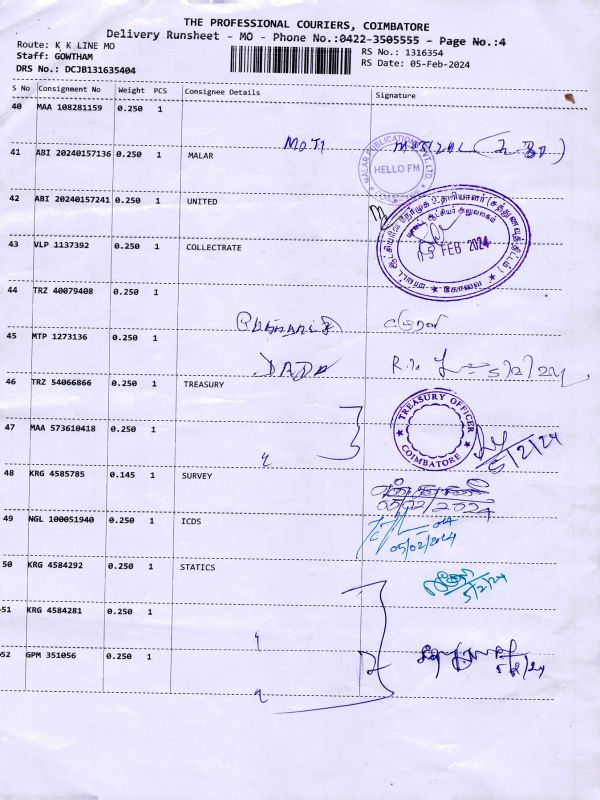 THE PROFESSIONAL COURIERS, COIMBATORE
Delivery Runsheet - MO - Phone No.:0422-3505555 - Page No.:4
Route: K K LINE MO
RS No.: 1316354
Staff: GOWTHAM
RS Date: 05-Feb-2024
DRS No.: DCJB131635404
S No Consignment No Weight PCS Consignee Details Signature
40 MAA 108281159 0.250 1
MOTI
41 ABI 20240157136 0.250 1 MALAR
MALAR PUBLICATIONS PVT. LTD.
HELLO FM
42 ABI 20240157241 0.250 1 UNITED
43 VLP 1137392 0.250 1 COLLECTRATE
5 FEB 2024
கோவை
44 TRZ 40079408 0.250 1
45 MTP 1273136 0.250 1
5/2/24
46 TRZ 54066866 0.250 1 TREASURY
TREASURY OFFICER
COIMBATORE
47 MAA 573610418 0.250 1
5/2/24
48 KRG 4585785 0.145 1 SURVEY
05/02/2024
49 NGL 100051940 0.250 1 ICDS
05/02/2024
50 KRG 4584292 0.250 1 STATICS
5/2/24
51 KRG 4584281 0.250 1
52 GPM 351056 0.250 1
5/2/24